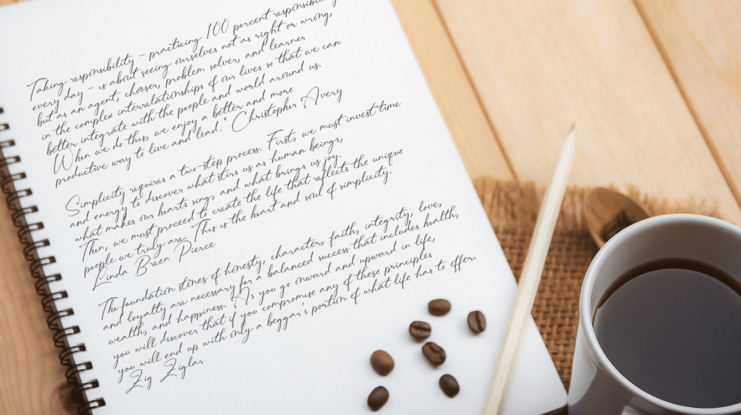 Taking responsibility - practicing 100 percent responsibility
every day - is about seeing ourselves not as right or wrong,
but as an agent, chooser, problem solver, and learner
in the complex interrelationships of our lives so that we can
better integrate with the people and world around us.
When we do this, we enjoy a better and more
productive way to live and lead." Christopher Avery
Simplicity requires a two-step process. First, we must invest time
and energy to discover what stirs us as human beings,
what makes our hearts sing, and what brings us joy.
Then, we must proceed to create the life that reflects the unique
people we truly are. This is the heart and soul of simplicity.
Linda Breen Pierce
The foundation stones of honesty, character, faith, integrity, love,
and loyalty are necessary for a balanced success that includes health,
wealth, and happiness. As you go onward and upward in life,
you will discover that if you compromise any of these principles
you will end up with only a beggar's portion of what life has to offer.
Zig Ziglar